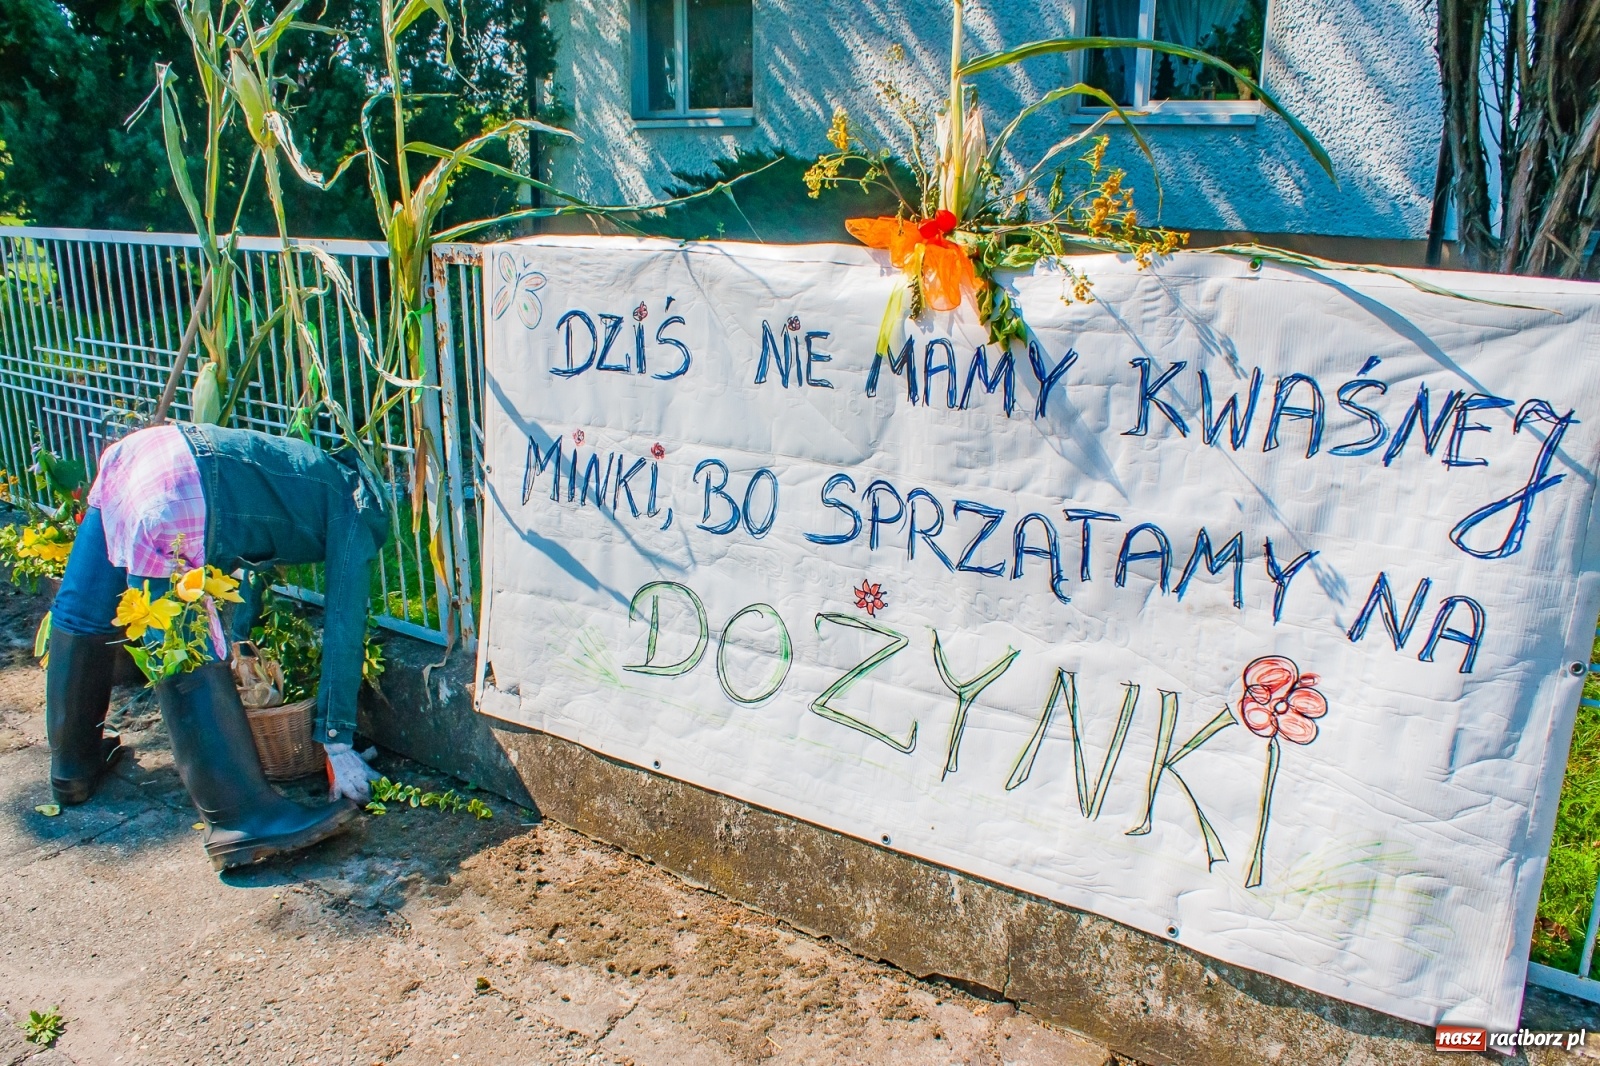 DZIŚ NIE MAMY KWAŚNEJ
MINKI, BO SPRZĄTAMY NA
DOŻYNKI
nasz raciborz.pl